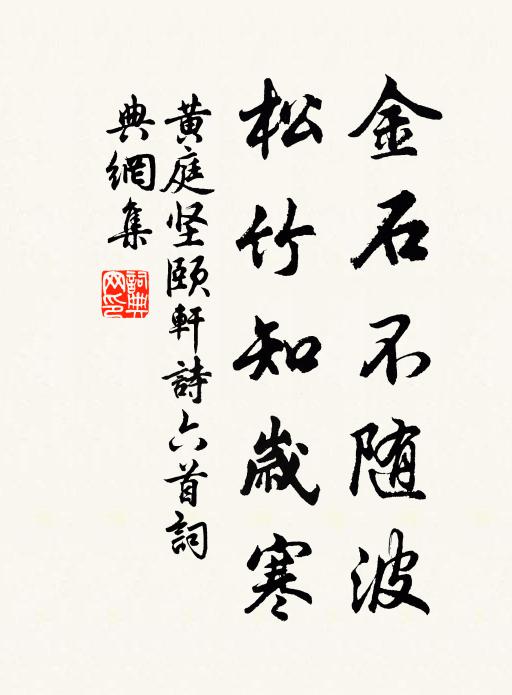 金石不随波
松竹知歲寒
黄庭坚頤軒詩六首詞
典網集
詞典
网印